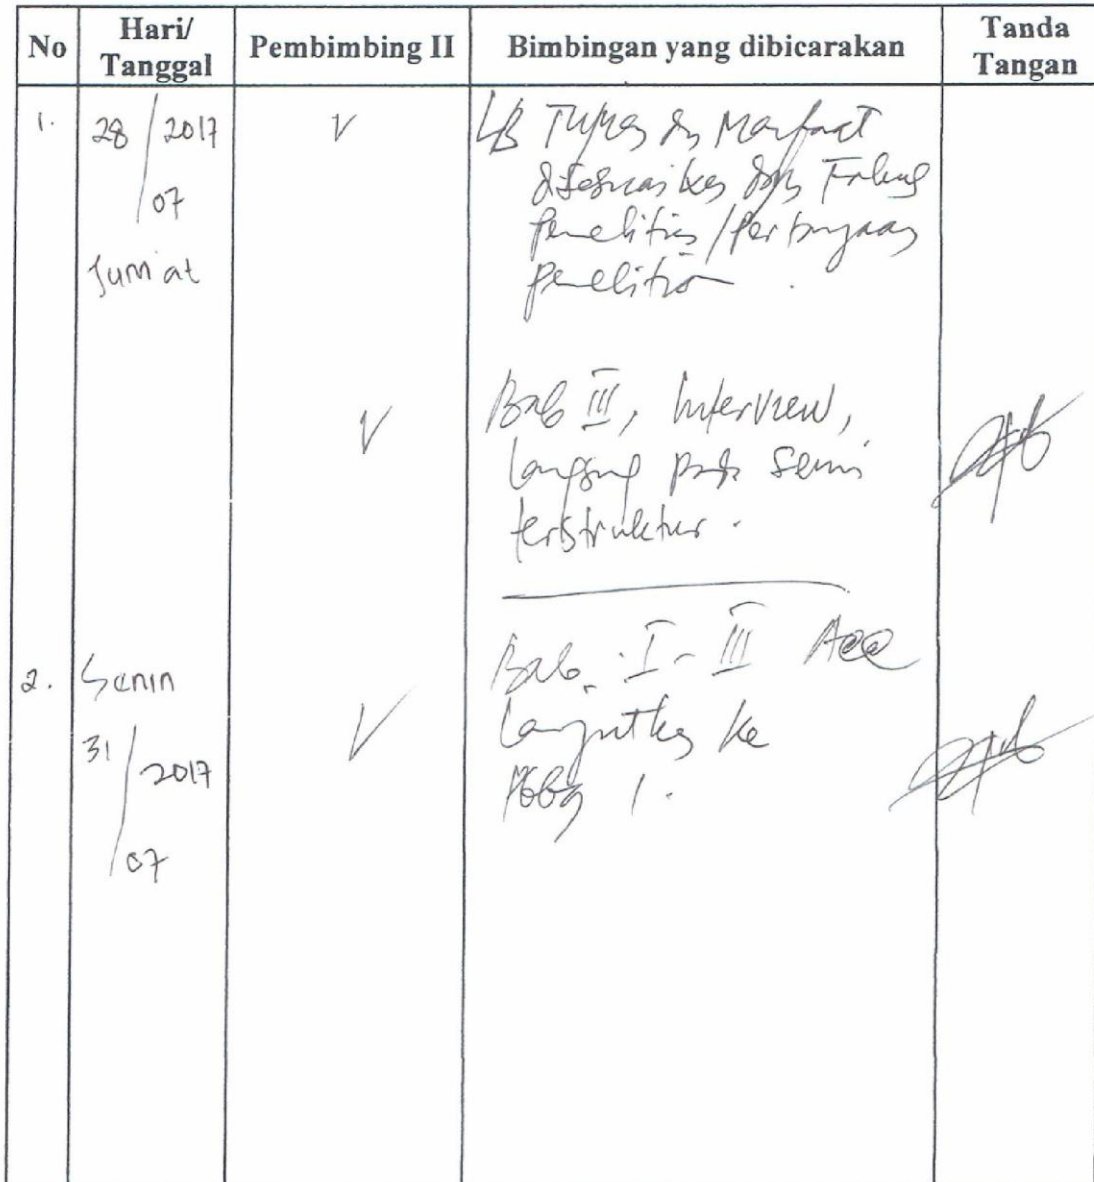 No Hari/ Tanggal Pembimbing II Bimbingan yang dibicarakan Tanda Tangan
1. 28/07 2017 V LB Tujuan dn Manfaat
Jum'at disesuaikan dgn Fokus
penelitian/pertanyaan
penelitian.
V Bab III, Interview,
langsung pada semi
terstruktur.
2. Senin V Bab. I - III Acc
31/07 2017 Lanjutkan ke
Pbbg 1.